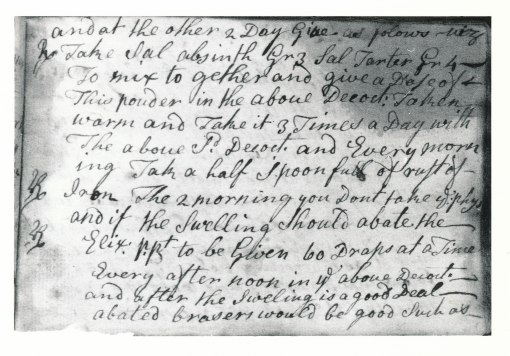 and at the other 2 Day Give as folows viz
℞ Take Sal absinth Gr 3 Sal Tarter Gr 4
To mix to gether and give a Dose of
This pouder in the above Decoct: Taken
warm and Take it 3 Times a Day with
The above Sd. Decoct: and Every morn
ing Tak a half Spoonfull of rust of
℞ Iron The 2 morning you Dont take ye phys
and if the Swelling Should abate the
℞ Elix: ppt to be Given 60 Draps at a Time
Every after noon in ye above Decoct:
and after the Sweling is a good Deal
abated brasers would be good Such as